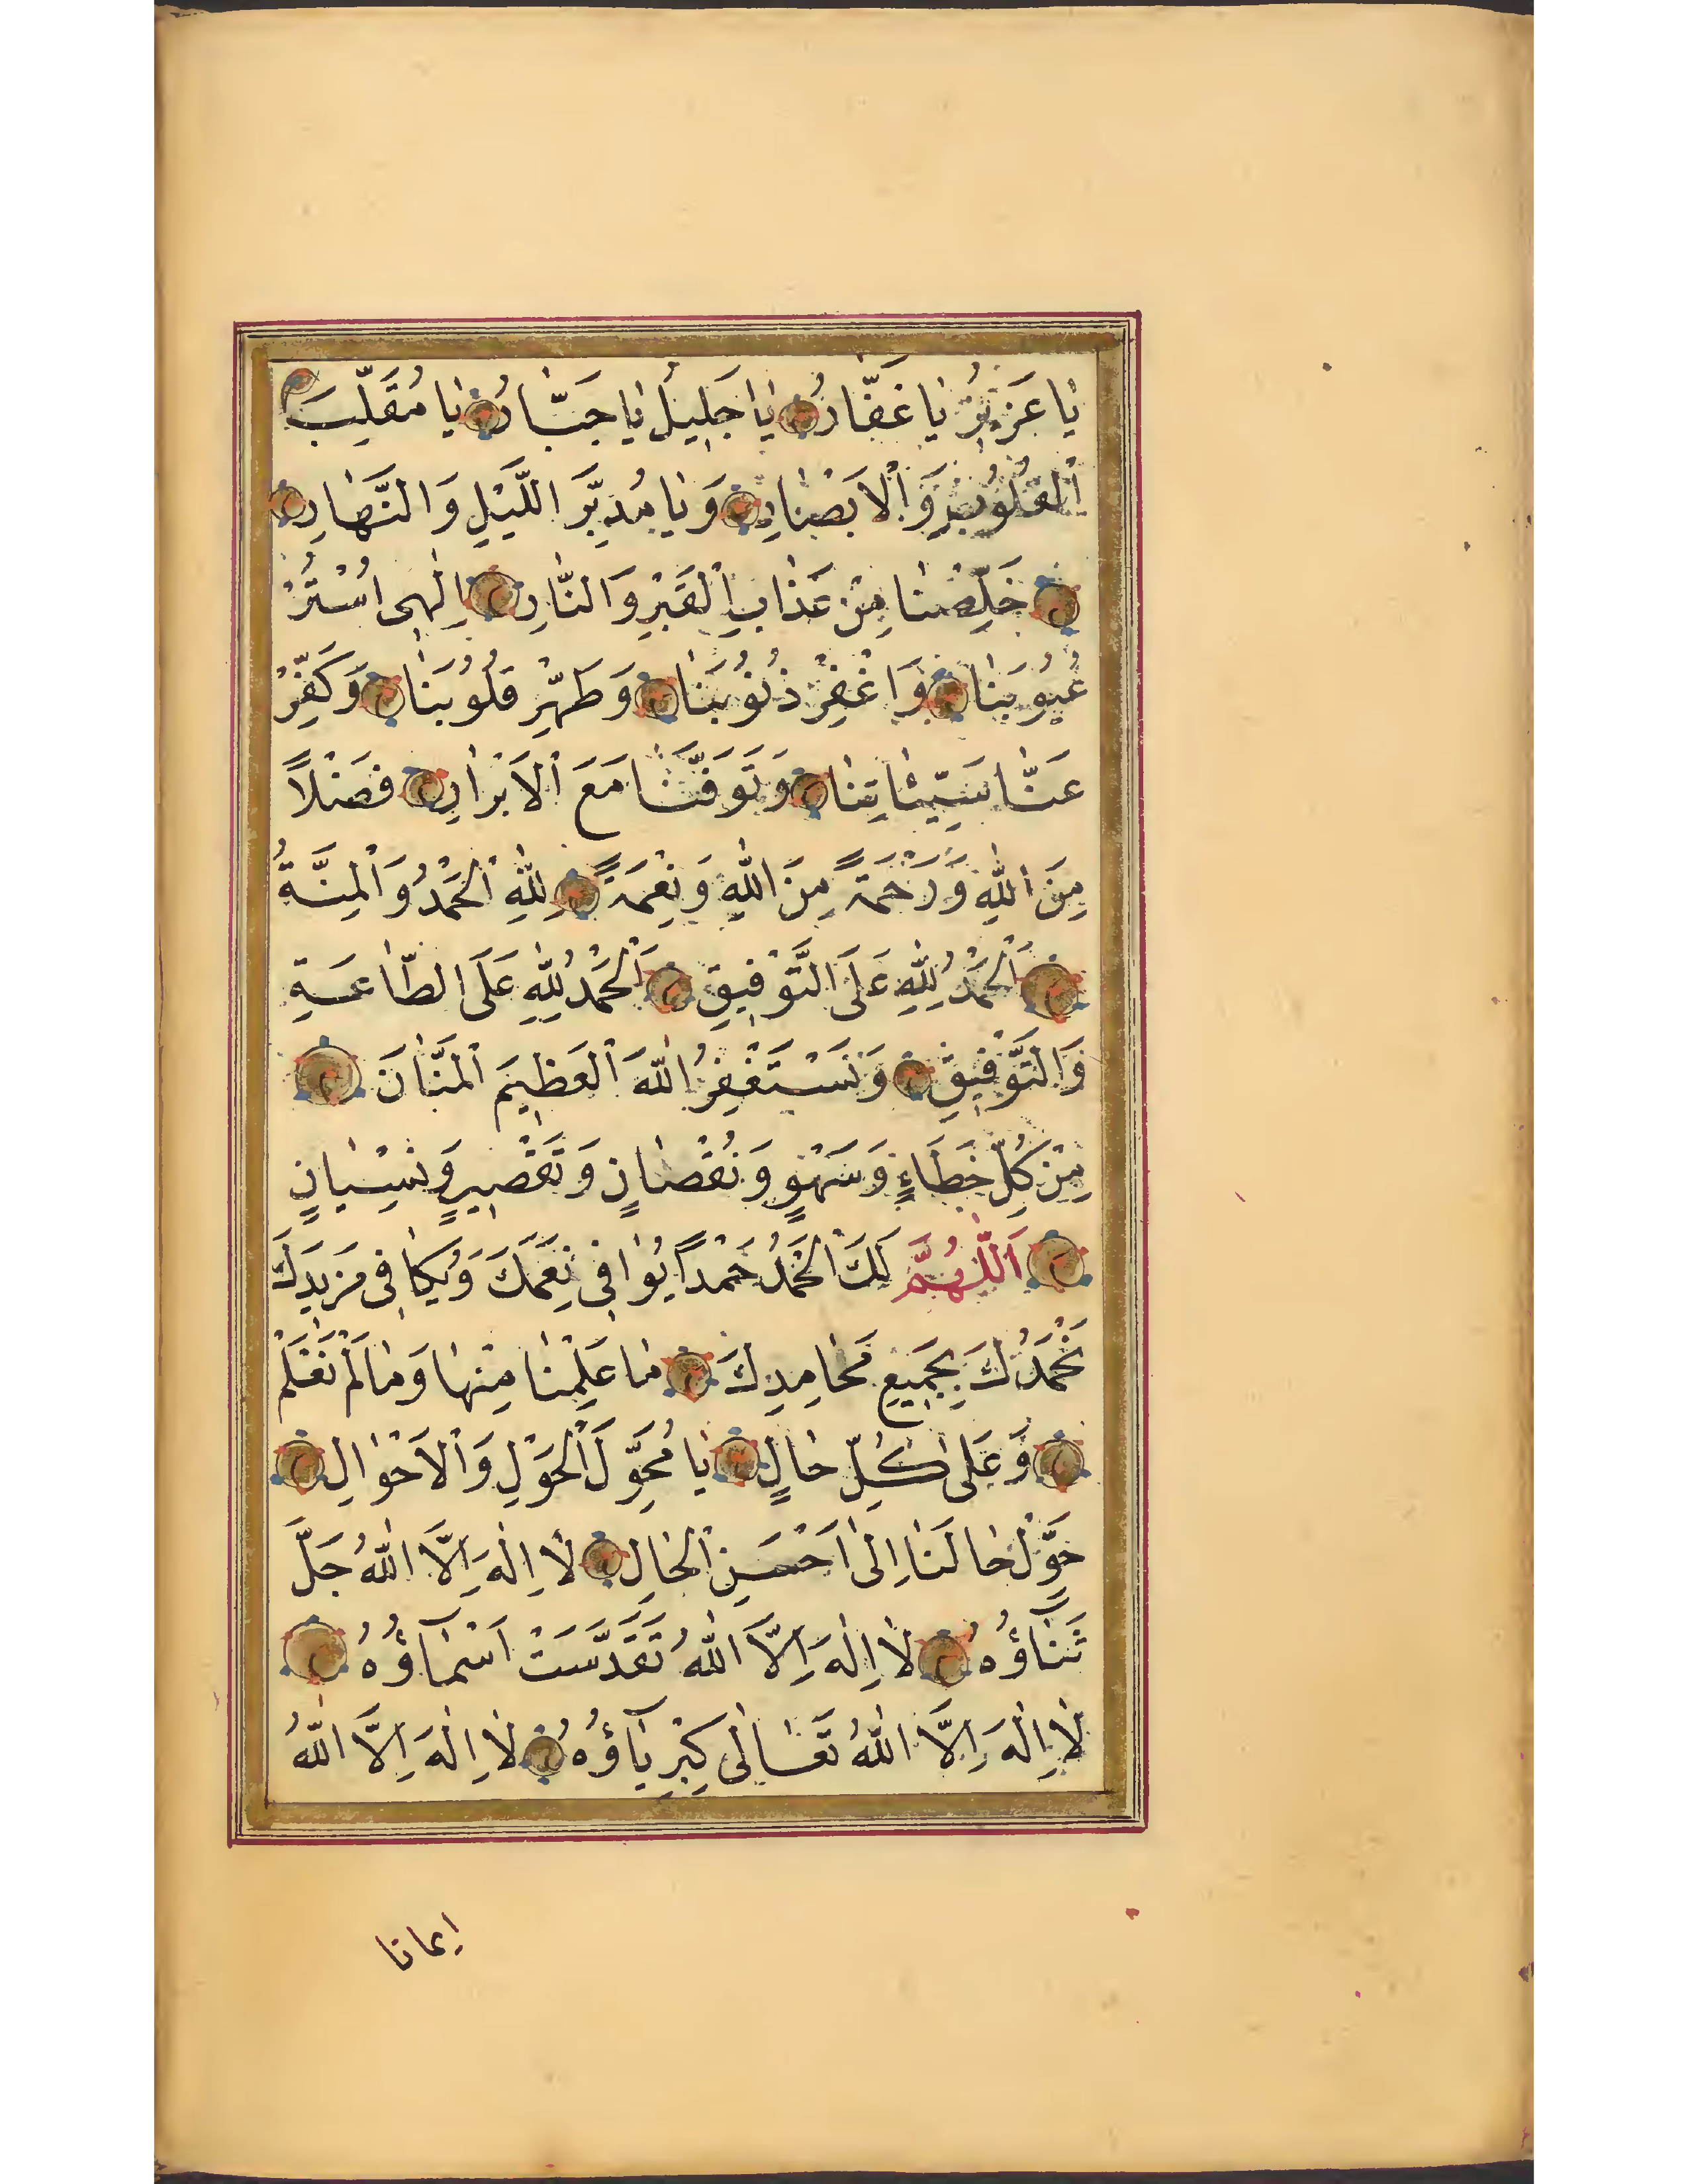 يَا عَزِيزُ يَا غَفَّارُ يَا جَلِيلُ يَا جَبَّارُ يَا مُقَلِّبَ
الْقُلُوبِ وَالْاَبْصَارِ وَيَا مُدَبِّرَ اللَّيْلِ وَالنَّهَارِ
خَلِّصْنَا مِنْ عَذَابِ الْقَبْرِ وَالنَّارِ اِلٰهِى اُسْتُرْ
عُيُوبَنَا وَاغْفِرْ ذُنُوبَنَا وَطَهِّرْ قُلُوبَنَا وَكَفِّرْ
عَنَّا سَيِّئَاتِنَا وَتَوَفَّنَا مَعَ الْاَبْرَارِ فَضْلًا
مِنَ اللّٰهِ وَرَحْمَةً مِنَ اللّٰهِ وَنِعْمَةً لِلّٰهِ الْحَمْدُ وَالْمِنَّةُ
اَلْحَمْدُ لِلّٰهِ عَلَى التَّوْفِيقِ اَلْحَمْدُ لِلّٰهِ عَلَى الطَّاعَةِ
وَالتَّوْفِيقِ وَنَسْتَغْفِرُ اللّٰهَ الْعَظِيمَ الْمَنَّانَ
مِنْ كُلِّ خَطَاءٍ وَسَهْوٍ وَنُقْصَانٍ وَتَقْصِيرٍ وَنِسْيَانٍ
اَللّٰهُمَّ لَكَ الْحَمْدُ حَمْدًا يُوَافِى نِعَمَكَ وَيُكَافِى مَزِيدَكَ
نَحْمَدُكَ بِجَمِيعِ مَحَامِدِكَ مَا عَلِمْنَا مِنْهَا وَمَا لَمْ نَعْلَمْ
وَعَلَى كُلِّ حَالٍ يَا مُحَوِّلَ الْحَوْلِ وَالْاَحْوَالِ
حَوِّلْ حَالَنَا اِلَى اَحْسَنِ الْحَالِ لَا اِلٰهَ اِلَّا اللّٰهُ جَلَّ
ثَنَاؤُهُ لَا اِلٰهَ اِلَّا اللّٰهُ تَقَدَّسَتْ اَسْمَآؤُهُ
لَا اِلٰهَ اِلَّا اللّٰهُ تَعَالَى كِبْرِيَآؤُهُ لَا اِلٰهَ اِلَّا اللّٰهُ
إيمانا